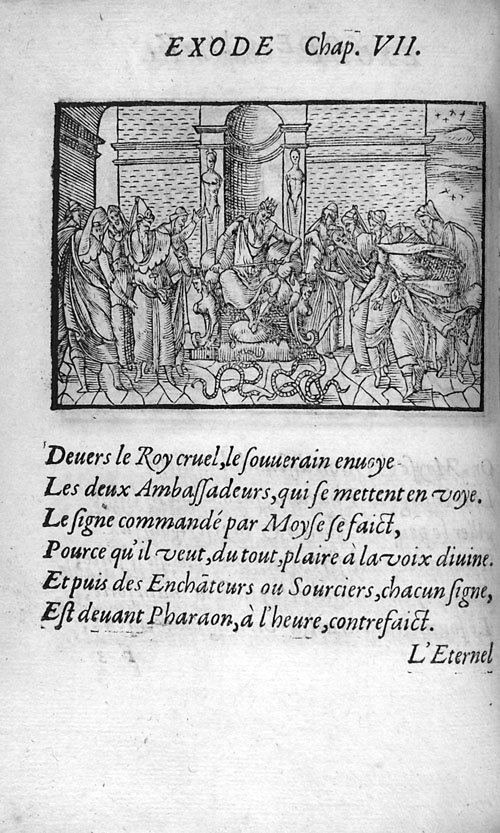 EXODE Chap. VII.
Deuers le Roy cruel, le souuerain enuoye
Les deux Ambassadeurs, qui se mettent en voye.
Le signe commandé par Moyse se faict,
Pource qu'il veut, du tout, plaire à la voix diuine.
Et puis des Enchãteurs ou Sourciers, chacun signe,
Est deuant Pharaon, à l'heure, contrefaict.
L'Eternel